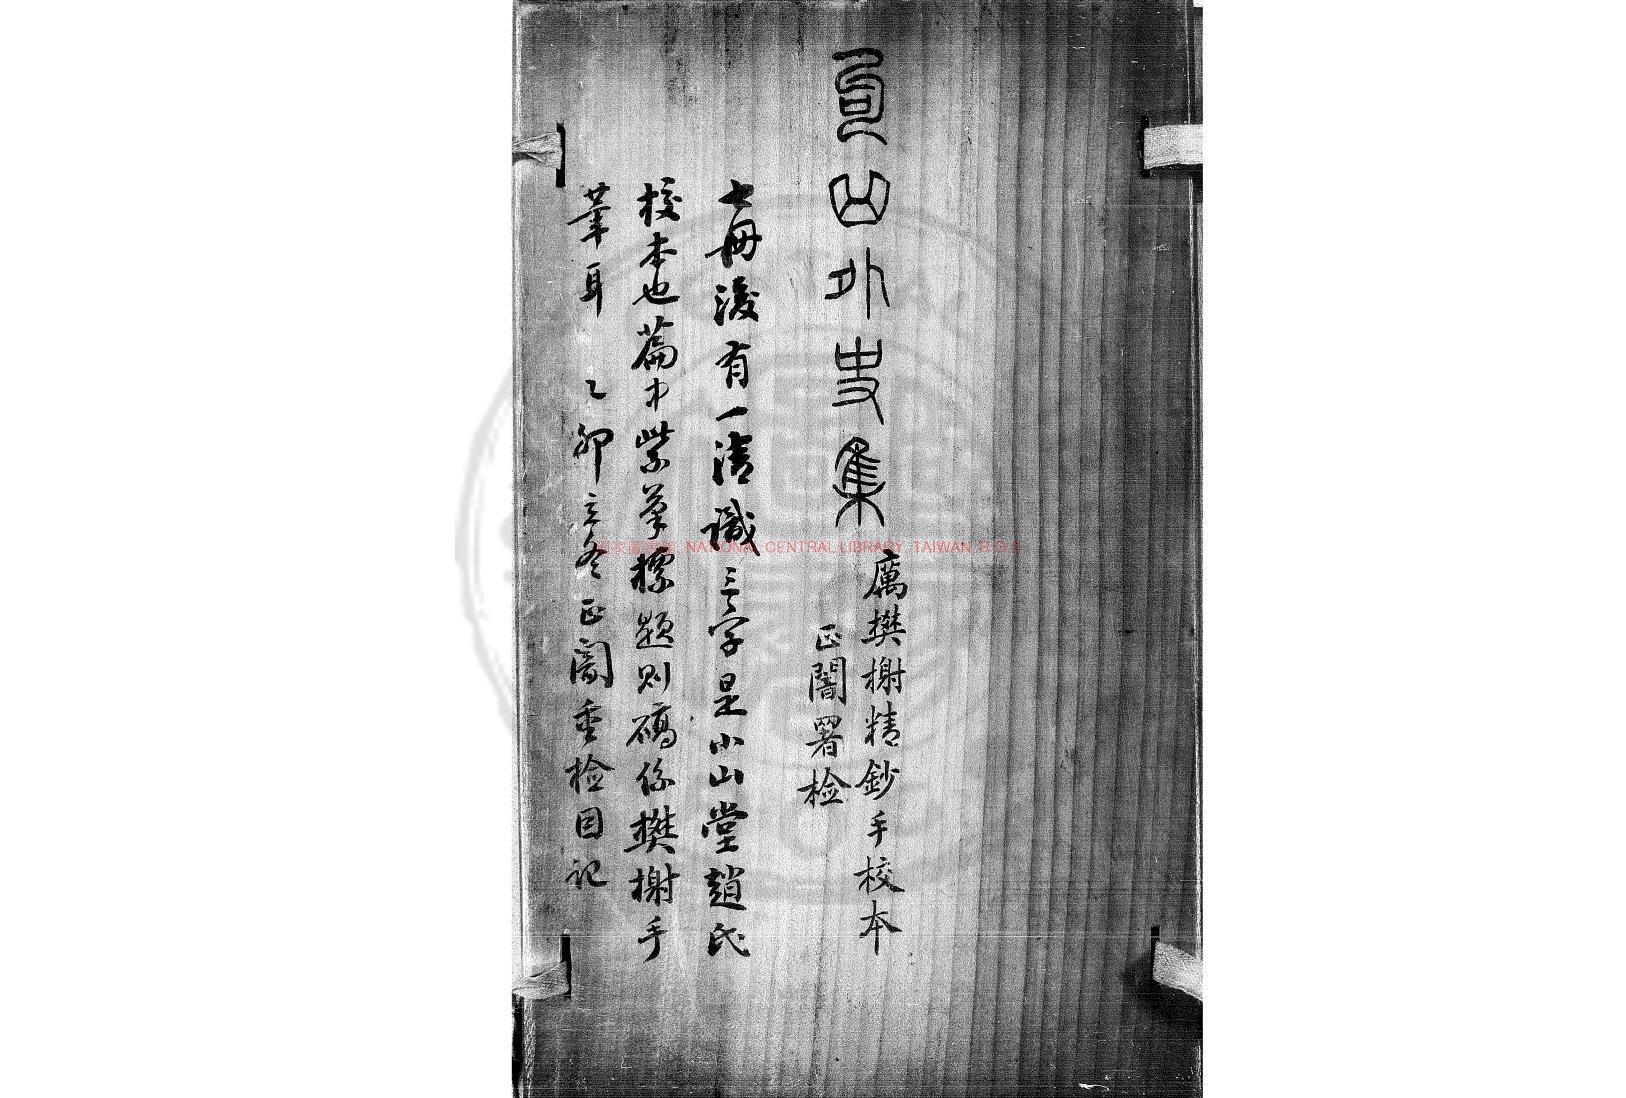 句曲外史集
厲樊榭精鈔手校本
正闇署检
七冊後有一清識三字是小山堂趙氏
校本也篇中紫筆標題則碻係樊榭手
筆耳 乙卯立冬正闇重检因記
國家圖書館 NATIONAL CENTRAL LIBRARY, TAIWAN, R.O.C